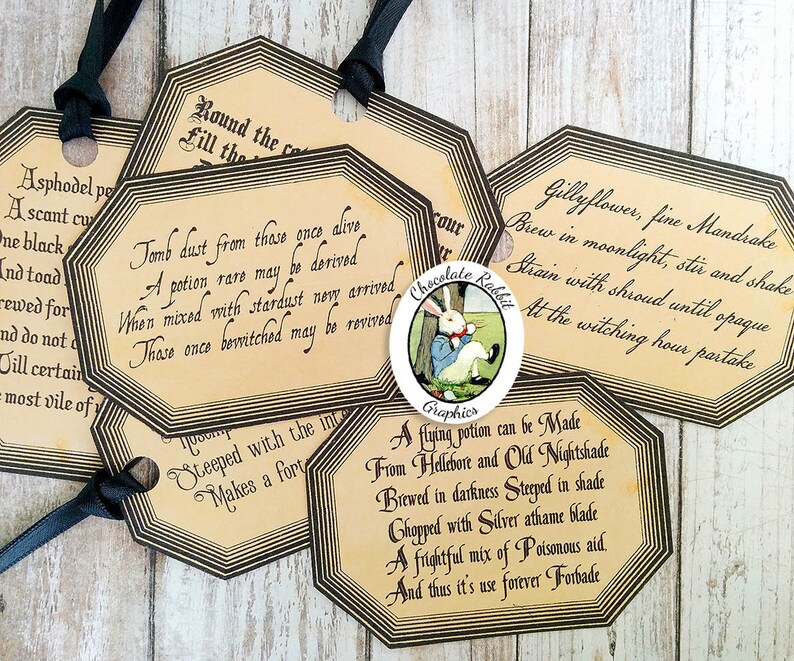 Asphodel
A scant
One black
And toad
for
and do not
Will certain
most vile of
Round the
Fill the
Tomb dust from those once alive
A potion rare may be derived
When mixed with stardust new arrived
Those once bewitched may be revived
Gillyflower, fine Mandrake
Brew in moonlight, stir and shake
Strain with shroud until opaque
At the witching hour partake
Chocolate Rabbit
Graphics
Steeped with the
Makes a
A flying potion can be Made
From Hellebore and Old Nightshade
Brewed in darkness Steeped in shade
Chopped with Silver athame blade
A frightful mix of Poisonous aid.
And thus it's use forever Forbade